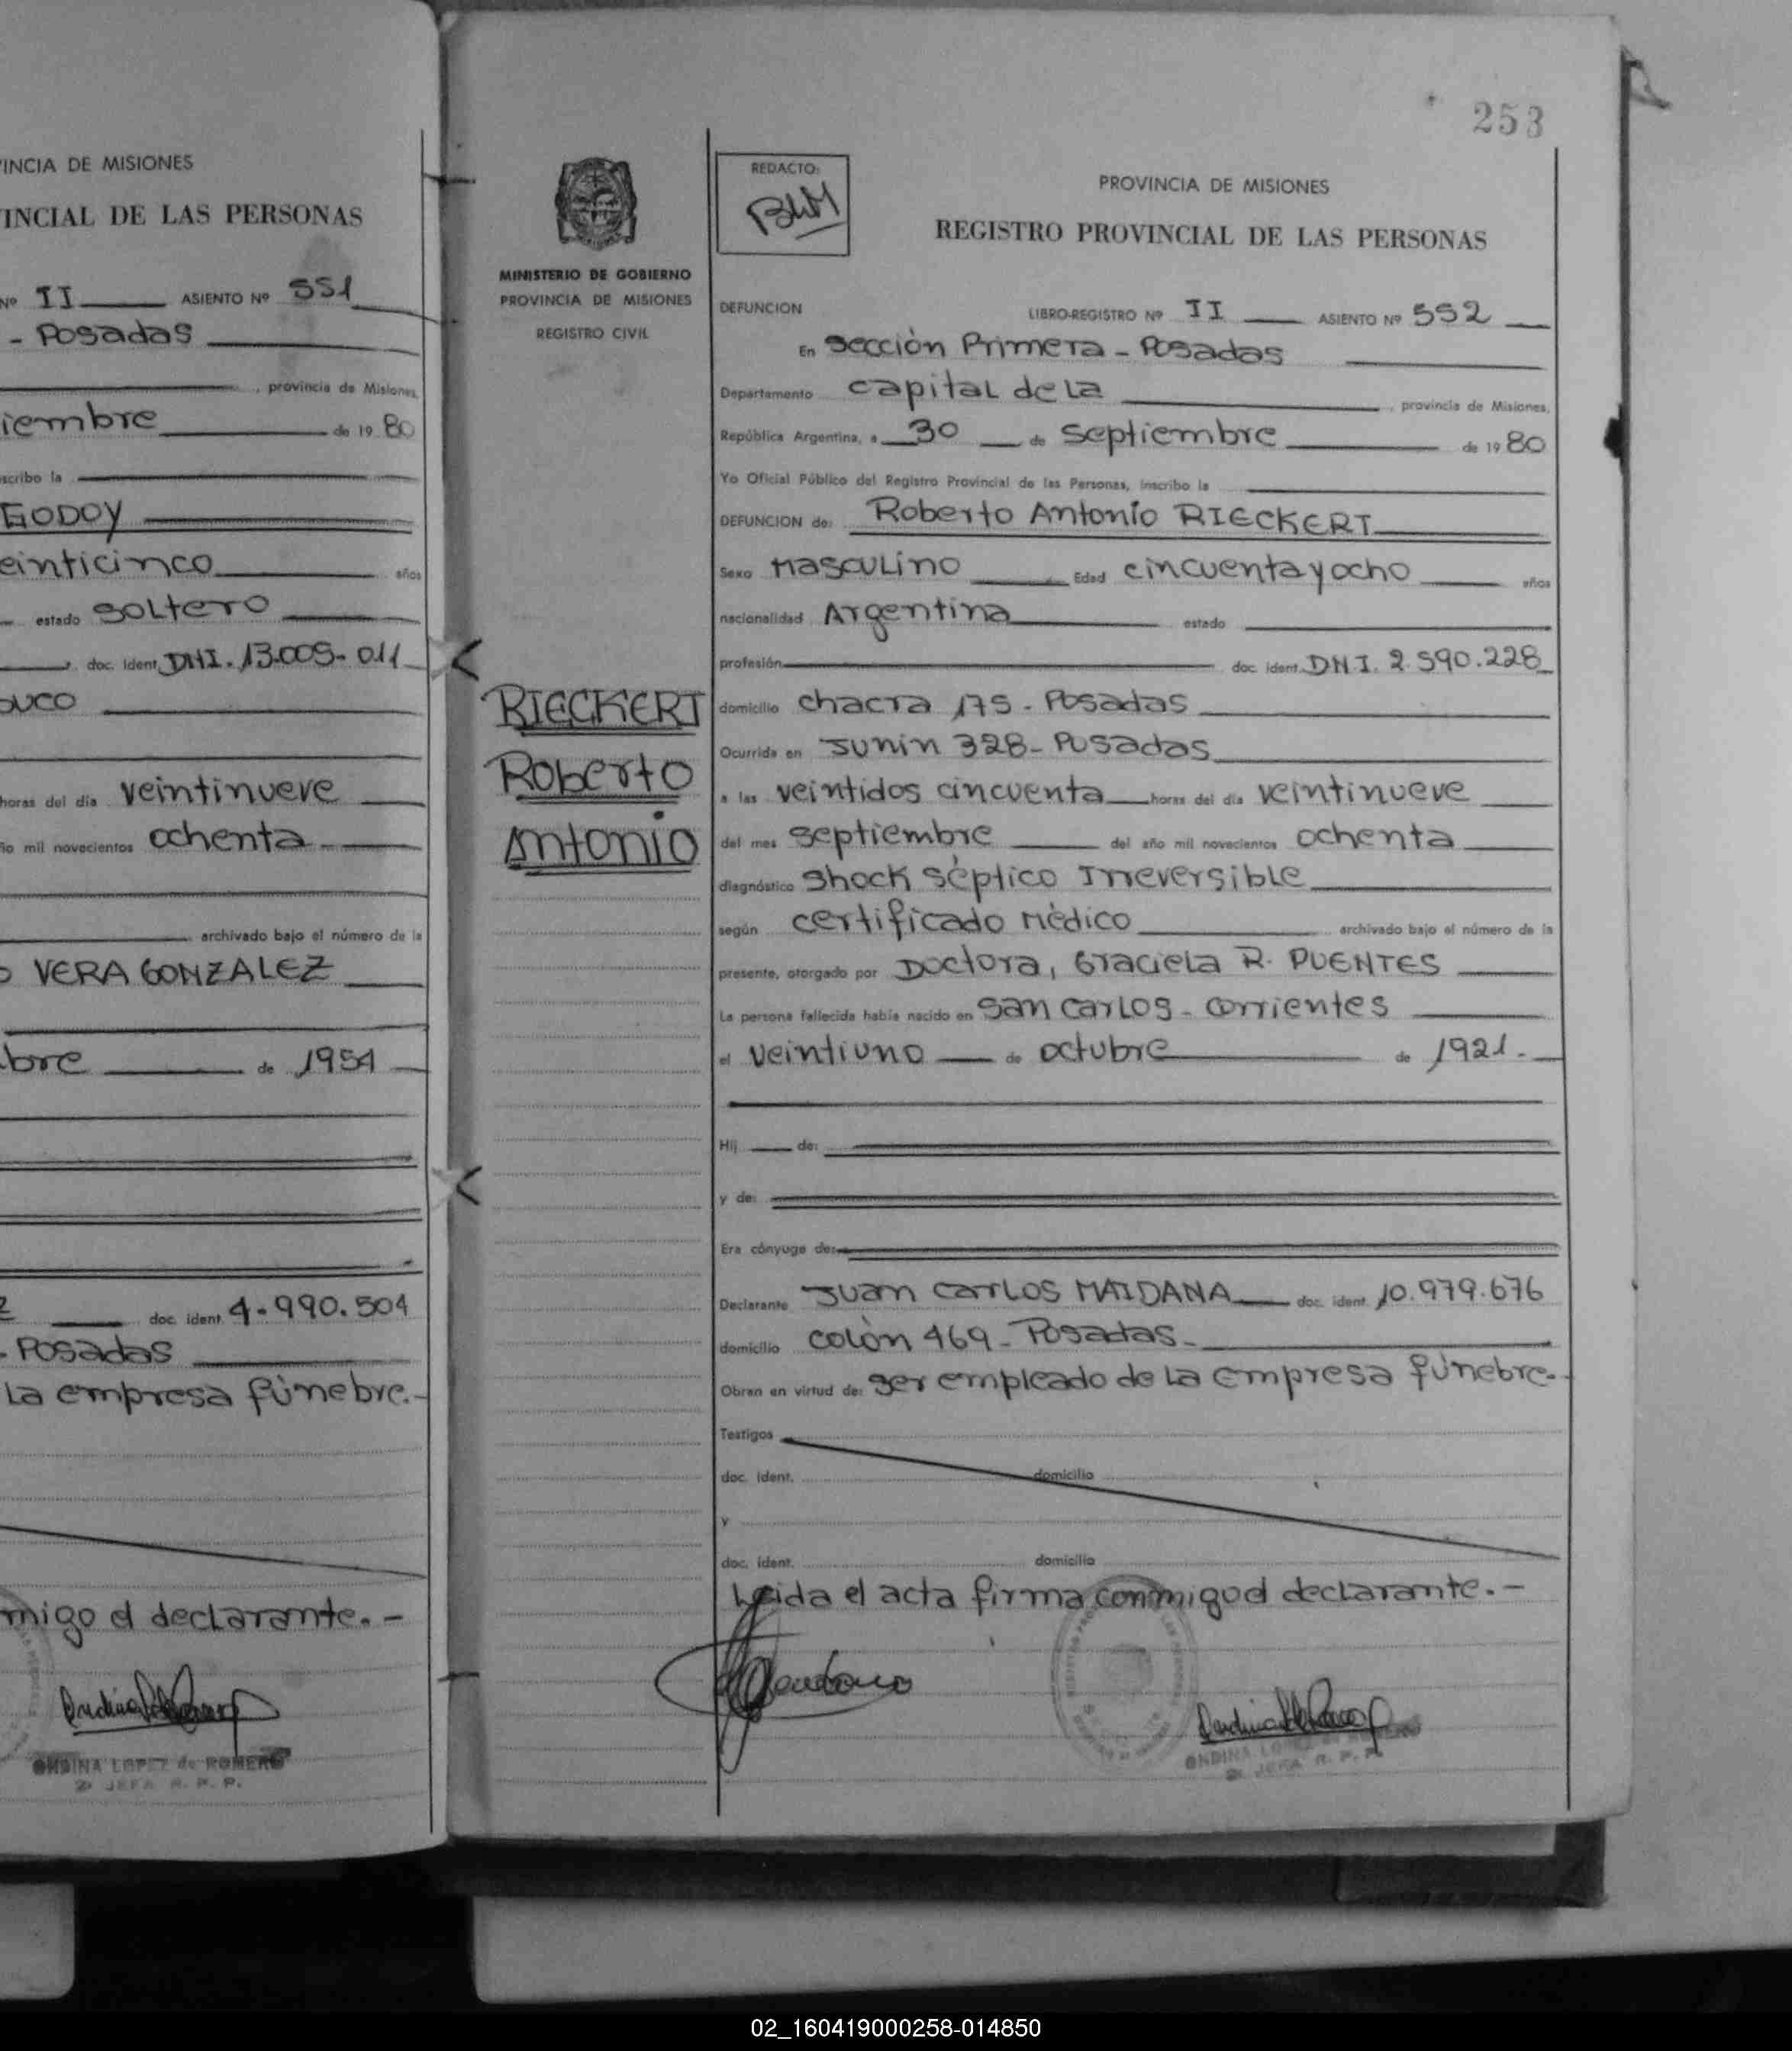 INCIA DE MISIONES
INCIAL DE LAS PERSONAS
Nº II ASIENTO Nº 551
- Posadas
, provincia de Misiones,
iembre de 19 80
scribo la
GODOY
einticinco años
estado soltero
doc. ident. DNI. 13.005-011
ouco
horas del día veintinueve
ño mil novecientos ochenta
archivado bajo el número de la
O VERA GONZALEZ
bre de 1954
Z doc. ident. 4.990.504
- Posadas
La empresa fúnebre.-
migo el declarante. -
ONDINA LOPEZ de ROMERO
2º JEFA R. P. P.
253
MINISTERIO DE GOBIERNO
PROVINCIA DE MISIONES
REGISTRO CIVIL
RIECKERT
Roberto
Antonio
REDACTO:
BLM
PROVINCIA DE MISIONES
REGISTRO PROVINCIAL DE LAS PERSONAS
DEFUNCION LIBRO-REGISTRO Nº II ASIENTO Nº 552
En sección Primera - Posadas
Departamento capital de la , provincia de Misiones,
República Argentina, a 30 de septiembre de 19 80
Yo Oficial Público del Registro Provincial de las Personas, inscribo la
DEFUNCION de: Roberto Antonio RIECKERT
Sexo Masculino Edad cincuenta y ocho años
nacionalidad Argentina estado
profesión doc. ident. DNI. 2.590.228
domicilio chacra 175 - Posadas
Ocurrida en Junín 328 - Posadas
a las veintidos cincuenta horas del día veintinueve
del mes septiembre del año mil novecientos ochenta
diagnóstico Shock séptico Irreversible
según certificado Médico archivado bajo el número de la
presente, otorgado por Doctora, Graciela R. PUENTES
La persona fallecida había nacido en San Carlos - Corrientes
el veintiuno de octubre de 1921.
Hij de:
y de:
Era cónyuge de:
Declarante Juan Carlos MAIDANA doc. ident. 10.979.676
domicilio colón 469 - Posadas -
Obran en virtud de: ser empleado de la empresa fúnebre.-
Testigos
doc. ident. domicilio
y
doc. ident. domicilio
Leida el acta firma conmigo el declarante. -
ONDINA LOPEZ de ROMERO
2º JEFA R. P. P.
02_160419000258-014850